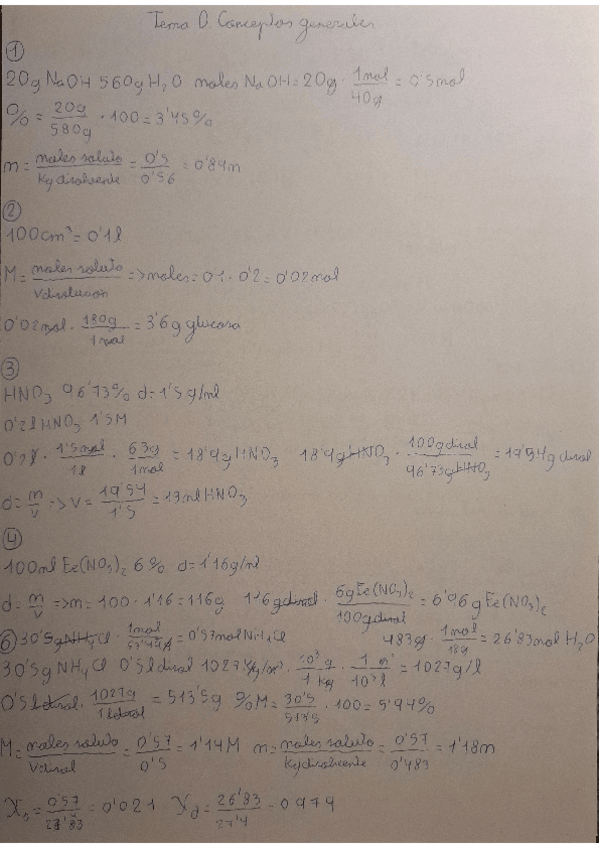 Tema 0. Conceptos generales
①
20g NaOH 560g H₂O moles NaOH = 20g · 1mol/40g = 0'5mol
% = 20g/580g · 100 = 3'45%
m = moles soluto/Kg disolvente = 0'5/0'56 = 0'89m
②
100cm³ = 0'1l
M = moles soluto/Vdisolucion => moles = 0'1 · 0'2 = 0'02mol
0'02mol · 180g/1mol = 3'6g glucosa
③
HNO₃ 96'73% d = 1'5g/ml
0'2l HNO₃ 1'5M
0'2l · 1'5mol/1l · 63g/1mol = 18'9g HNO₃ 18'9g HNO₃ · 100g disol/96'73g HNO₃ = 19'54g disol
d = m/v -> v = 19'54/1'5 = 13ml HNO₃
④
100ml Fe(NO₃)₂ 6% d = 1'16g/ml
d = m/v => m = 100 · 1'16 = 116g 116g disol · 6g Fe(NO₃)₂/100g disol = 6'96g Fe(NO₃)₂
⑥ 30'5g NH₄Cl · 1mol/ = 0'57mol NH₄Cl 483g · 1mol/18g = 26'83mol H₂O
30'5g NH₄Cl 0'5l disol 1027 Kg/m³ · 10³g/1Kg · 1m³/10³l = 1027g/l
0'5l disol · 1027g/1l disol = 513'5g %M = 30'5/513'5 · 100 = 5'94%
M = moles soluto/Vdisol = 0'57/0'5 = 1'14M m = moles soluto/Kg disolvente = 0'57/0'483 = 1'18m
Xs = 0'57/ = 0'021 Xd = 26'83/27'4 = 0'979